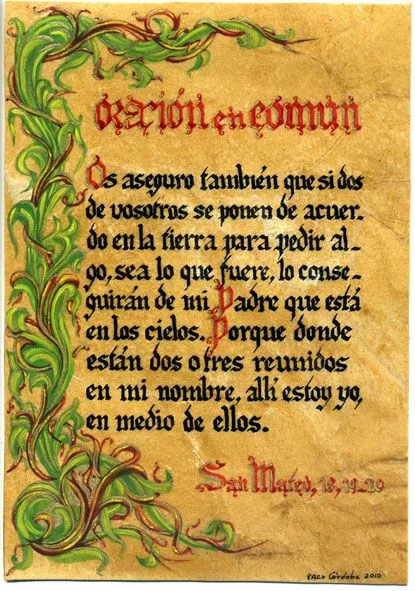 oración en común
Os aseguro también que si dos
de vosotros se ponen de acuer-
do en la tierra para pedir al-
go, sea lo que fuere, lo conse-
guirán de mi Padre que está
en los cielos. Porque donde
están dos o tres reunidos
en mi nombre, allí estoy yo,
en medio de ellos.
San Mateo, 18, 19-20
PACO Córdoba 2010